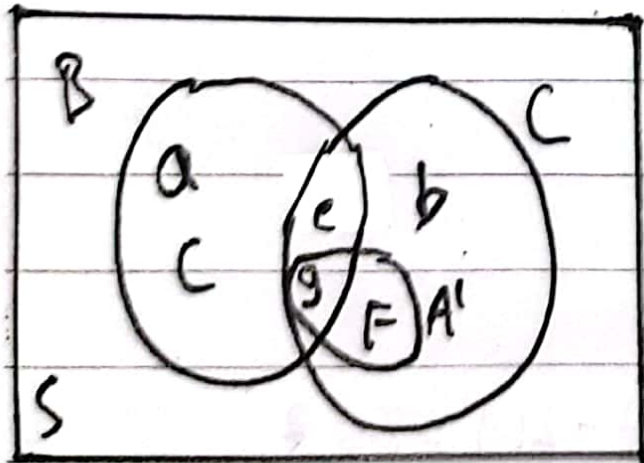 B
C
a
e
b
C
g
F
A'
S